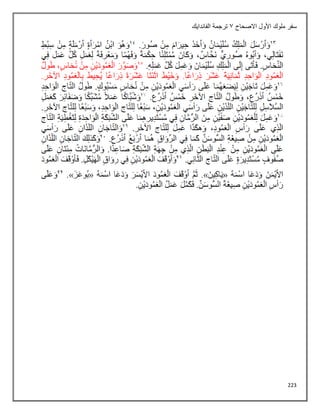 سفر ملوك الأول الاصحاح ٧ ترجمة الفاندايك
١٣وَأَرْسَلَ الْمَلِكُ سُلَيْمَانُ وَأَخَذَ حِيرَامَ مِنْ صُورَ. ١٤وَهُوَ ابْنُ امْرَأَةٍ أَرْمَلَةٍ مِنْ سِبْطِ
نَفْتَالِي، وَأَبُوهُ صُورِيٌّ نُحَّاسٌ، وَكَانَ مُمْتَلِئًا حِكْمَةً وَفَهْمًا وَمَعْرِفَةً لِعَمَلِ كُلِّ عَمَل فِي
النُّحَاسِ. فَأَتَى إِلَى الْمَلِكِ سُلَيْمَانَ وَعَمِلَ كُلَّ عَمَلِهِ. ١٥وَصَوَّرَ الْعَمُودَيْنِ مِنْ نُحَاسٍ، طُولُ
الْعَمُودِ الْوَاحِدِ ثَمَانِيَةَ عَشَرَ ذِرَاعًا. وَخَيْطٌ اثْنَتَا عَشَرَةَ ذِرَاعًا يُحِيطُ بِالْعَمُودِ الآخَرِ.
١٦وَعَمِلَ تَاجَيْنِ لِيَضَعَهُمَا عَلَى رَأْسَيِ الْعَمُودَيْنِ مِنْ نُحَاسٍ مَسْبُوكٍ. طُولُ التَّاجِ الْوَاحِدِ
خَمْسُ أَذْرُعٍ، وَطُولُ التَّاجِ الآخَرِ خَمْسُ أَذْرُعٍ. ١٧وَشُبَّاكًا عَمَلاً مُشَبَّكًا وَضَفَائِرَ كَعَمَلِ
السَّلاَسِلِ لِلتَّاجَيْنِ اللَّذَيْنِ عَلَى رَأْسَيِ الْعَمُودَيْنِ، سَبْعًا لِلتَّاجِ الْوَاحِدِ، وَسَبْعًا لِلتَّاجِ الآخَرِ.
١٨وَعَمِلَ لِلْعَمُودَيْنِ صَفَّيْنِ مِنَ الرُّمَّانِ فِي مُسْتَدِيرِهِمَا عَلَى الشَّبَكَةِ الْوَاحِدَةِ لِتَغْطِيَةِ التَّاجِ
الَّذِي عَلَى رَأْسِ الْعَمُودِ، وَهكَذَا عَمِلَ لِلتَّاجِ الآخَرِ. ١٩وَالتَّاجَانِ اللَّذَانِ عَلَى رَأْسَيِ
الْعَمُودَيْنِ مِنْ صِيغَةِ السَّوْسَنِّ كَمَا فِي الرِّوَاقِ هُمَا أَرْبَعُ أَذْرُعٍ. ٢٠وَكَذلِكَ التَّاجَانِ اللَّذَانِ
عَلَى الْعَمُودَيْنِ مِنْ عِنْدِ الْبَطْنِ الَّذِي مِنْ جِهَةِ الشَّبَكَةِ صَاعِدًا. وَالرُّمَّانَاتُ مِئَتَانِ عَلَى
صُفُوفٍ مُسْتَدِيرَةٍ عَلَى التَّاجِ الثَّانِي. ٢١وَأَوْقَفَ الْعَمُودَيْنِ فِي رِوَاقِ الْهَيْكَلِ. فَأَوْقَفَ الْعَمُودَ
الأَيْمَنَ وَدَعَا اسْمَهُ «يَاكِينَ». ثُمَّ أَوْقَفَ الْعَمُودَ الأَيْسَرَ وَدَعَا اسْمَهُ «بُوعَزَ». ٢٢وَعَلَى
رَأْسِ الْعَمُودَيْنِ صِيغَةُ السَّوْسَنِّ. فَكَمُلَ عَمَلُ الْعَمُودَيْنِ.
223